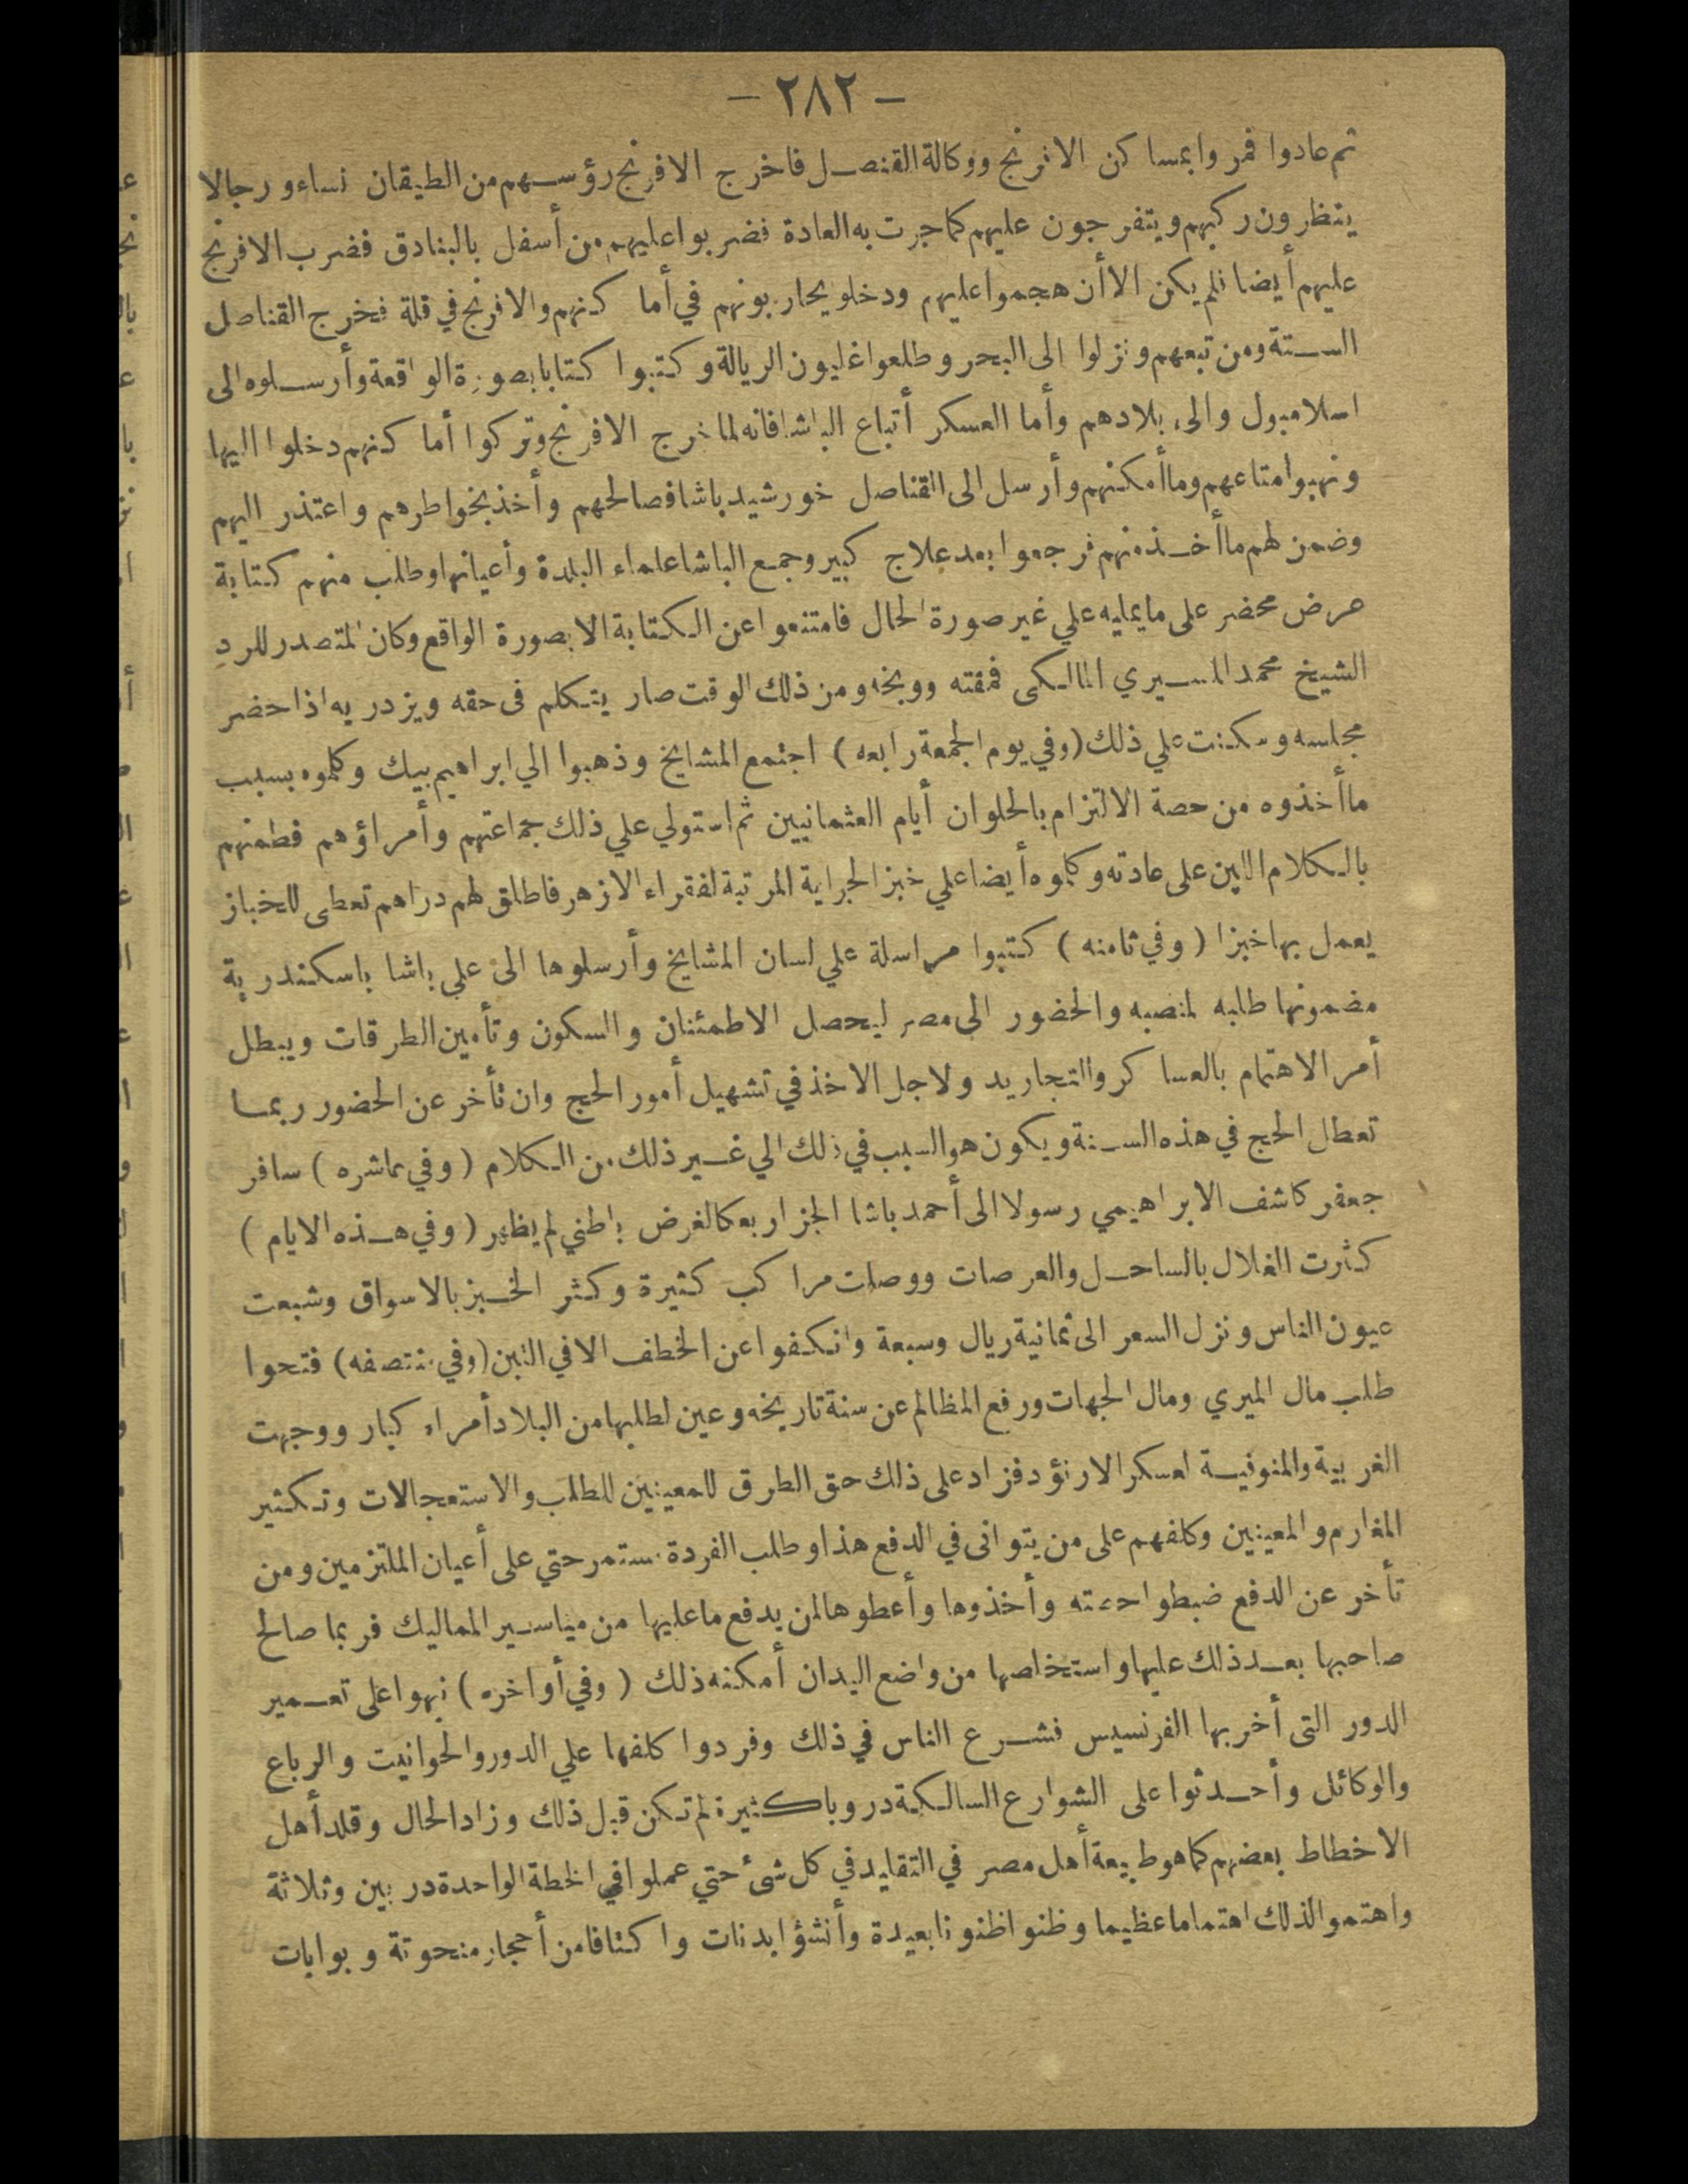 — ٢٨٢ —
ثم عادوا فمروا بمساكن الافرنج ووكالة القنصل فاخرج الافرنج رؤسهم من الطيقان نساء ورجالا
ينظرون ركبهم ويتفرجون عليهم كما جرت به العادة فضربوا عليهم من أسفل بالبنادق فضرب الافرنج
عليهم أيضا فلم يكن الا أن هجموا عليهم ودخلو يحاربونهم في أماكنهم والافرنج في قلة فخرج القناصل
الستة ومن تبعهم ونزلوا الى البحر وطلعوا غليون الريالة وكتبوا كتابا بصورة الواقعة وأرسلوه الى
اسلامبول والى بلادهم وأما العسكر أتباع الباشا فانه لما خرج الافرنج وتركوا أماكنهم دخلوا اليها
ونهبوا متاعهم وما أمكنهم وأرسل الى القناصل خورشيد باشا فصالحهم وأخذ بخواطرهم واعتذر اليهم
وضمن لهم ما أخذ منهم فرجعوا بعد علاج كبير وجمع الباشا علماء البلدة وأعيانها وطلب منهم كتابة
عرض محضر على ما يمليه علي غير صورة الحال فامتنعوا عن الكتابة الا بصورة الواقع وكان المتصدر للرد
الشيخ محمد المسيري المالكى فمقته ووبخه ومن ذلك الوقت صار يتكلم فى حقه ويزدريه اذا حضر
مجلسه وسكنت علي ذلك (وفي يوم الجمعة رابعه) اجتمع المشايخ وذهبوا الي ابراهيم بيك وكلموه بسبب
ما أخذوه من حصة الالتزام بالحلوان أيام العثمانيين ثم استولي علي ذلك جماعتهم وأمراؤهم فطمنهم
بالكلام اللين على عادته وكلموه أيضا علي خبز الجراية المرتبة لفقراء الازهر فاطلق لهم دراهم تعطى للخباز
يعمل بها خبزا (وفي ثامنه) كتبوا مراسلة علي لسان المشايخ وأرسلوها الى علي باشا باسكندرية
مضمونها طلبه لمنصبه والحضور الى مصر ليحصل الاطمئنان والسكون وتأمين الطرقات ويبطل
أمر الاهتمام بالعساكر والتجاريد ولاجل الاخذ في تشهيل أمور الحج وان تأخر عن الحضور ربما
تعطل الحج في هذه السنة ويكون هو السبب في ذلك الي غير ذلك من الكلام (وفي عاشره) سافر
جعفر كاشف الابراهيمي رسولا الى أحمد باشا الجزار بعكا لغرض باطني لم يظهر (وفي هذه الايام)
كثرت الغلال بالساحل والعرصات ووصلت مراكب كثيرة وكثر الخبز بالاسواق وشبعت
عيون الناس ونزل السعر الى ثمانية ريال وسبعة وانكفوا عن الخطف الا في التبن (وفي منتصفه) فتحوا
طلب مال الميري ومال الجهات ورفع المظالم عن سنة تاريخه وعين لطلبها من البلاد أمراء كبار ووجهت
الغربية والمنوفية لعسكر الارنؤد فزاد على ذلك حق الطرق للمعينين للطلب والاستعجالات وتكثير
المغارم والمعينين وكلفهم على من يتوانى في الدفع هذا وطلب الفردة مستمر حتي على أعيان الملتزمين ومن
تأخر عن الدفع ضبطوا حصته وأخذوها وأعطوها لمن يدفع ما عليها من مياسير المماليك فربما صالح
صاحبها بعد ذلك عليها واستخلصها من واضع اليد ان أمكنه ذلك (وفي أواخره) نبهوا على تعمير
الدور التى أخربها الفرنسيس فشرع الناس في ذلك وفردوا كلفها علي الدور والحوانيت والرباع
والوكائل وأحدثوا على الشوارع السالكة دروبا كثيرة لم تكن قبل ذلك وزاد الحال وقلد أهل
الاخطاط بعضهم كما هو طبيعة أهل مصر في التقليد في كل شئ حتي عملوا في الخطة الواحدة دربين وثلاثة
واهتموا لذلك اهتماما عظيما وظنوا ظنونا بعيدة وأنشؤا بدنات واكتافا من أحجار منحوتة وبوابات